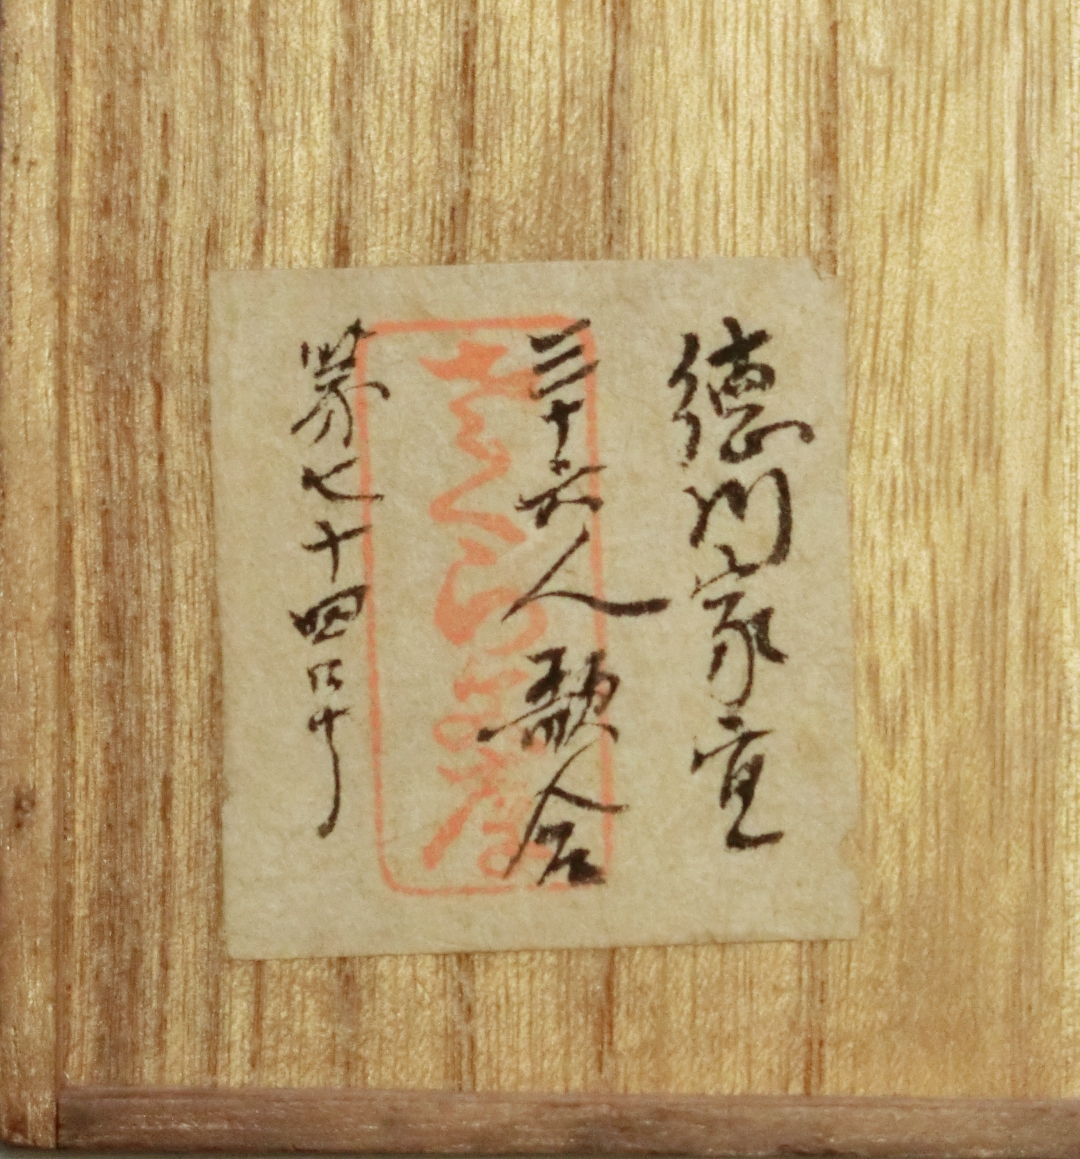 徳川家宣
三十六人歌合
第七十四号